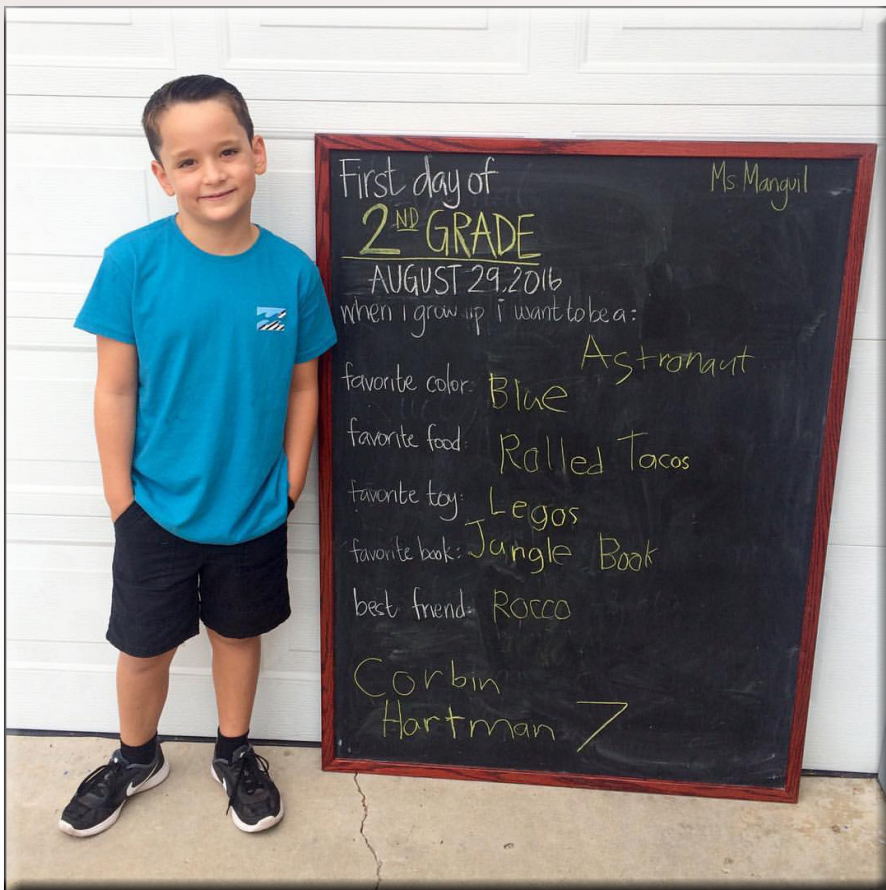 First day of
Ms. Manguil
2ND GRADE
AUGUST 29, 2016
when i grow up i want to be a:
Astronaut
favorite color: Blue
favorite food: Rolled Tacos
favorite toy: Legos
favorite book: Jungle Book
best friend: Rocco
Corbin
Hartman 7